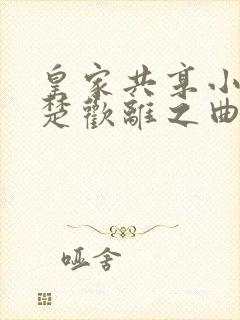 皇家共享小
楚歡離之曲
哑舍